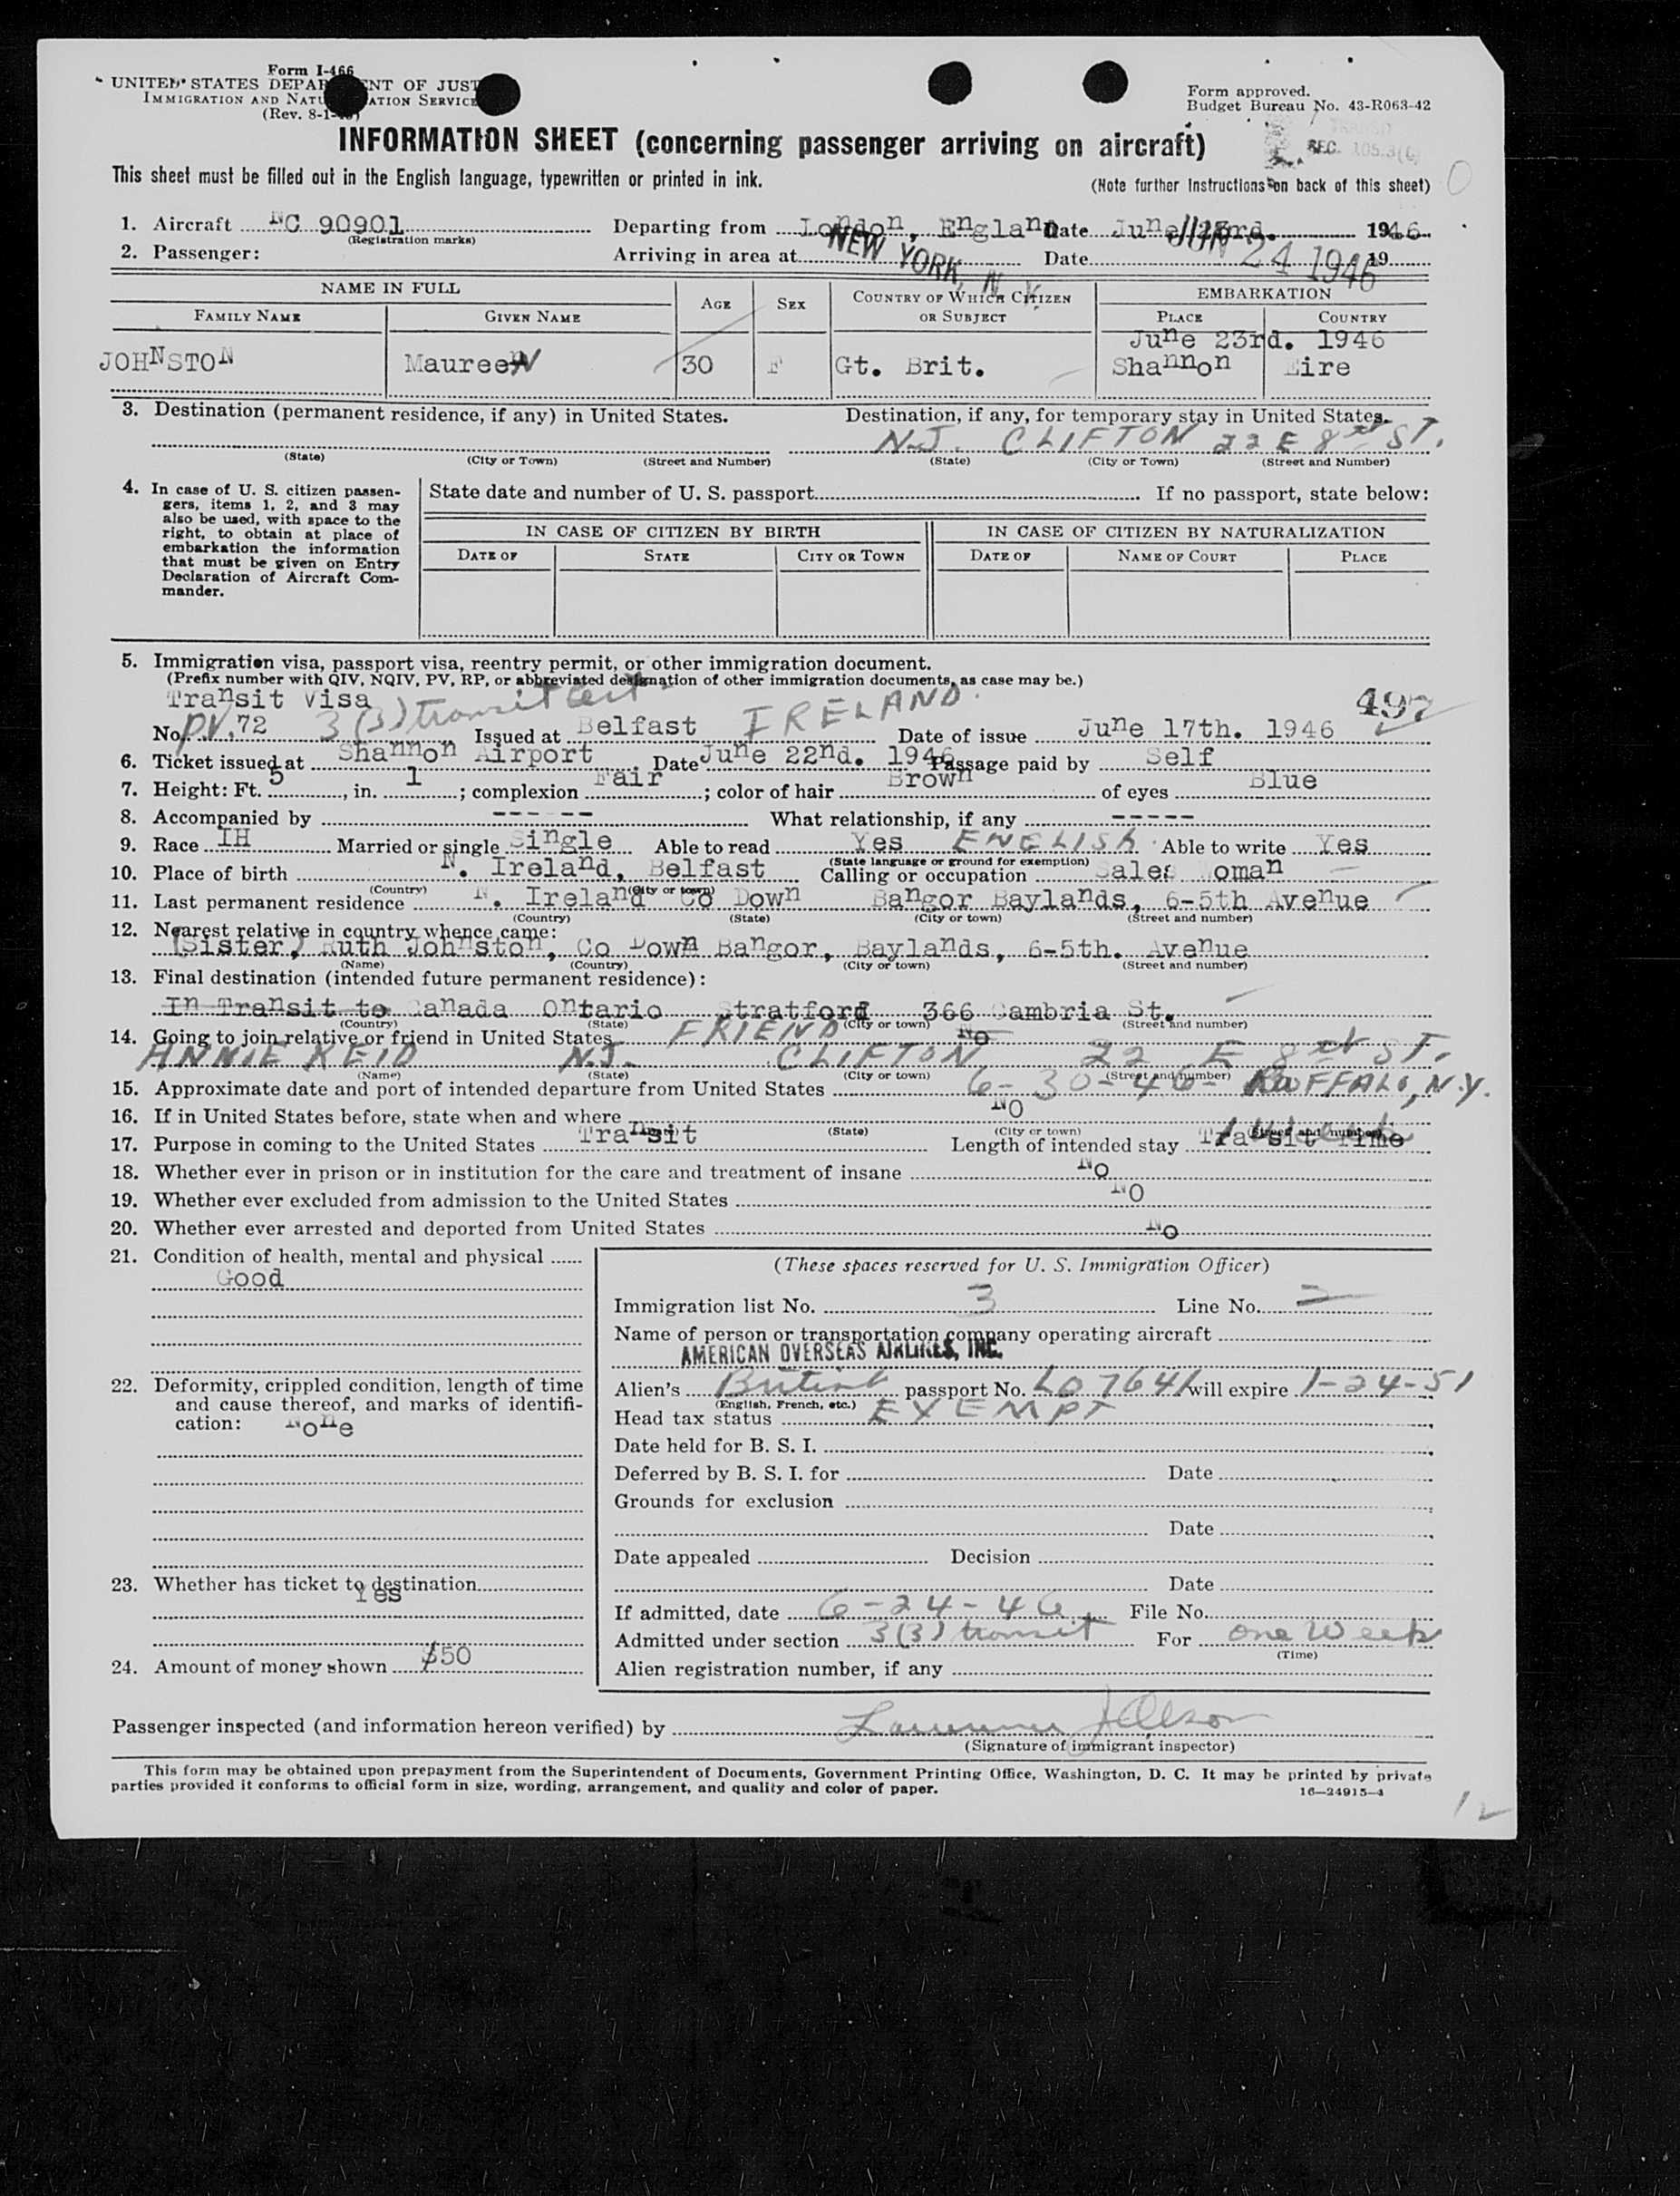 Form I-466
UNITED STATES DEPARTMENT OF JUSTICE
IMMIGRATION AND NATURALIZATION SERVICE
(Rev. 8-1-
Form approved.
Budget Bureau No. 43-R063-42
SEC. 105.3(
INFORMATION SHEET (concerning passenger arriving on aircraft)
This sheet must be filled out in the English language, typewritten or printed in ink. (Note further instructions on back of this sheet)
1. Aircraft NC 90901 Departing from London, England Date June 23rd. 1946
(Registration marks)
2. Passenger: Arriving in area at NEW YORK, N. Y. Date JUN 24 1946 19
NAME IN FULL AGE SEX COUNTRY OF WHICH CITIZEN OR SUBJECT EMBARKATION
FAMILY NAME GIVEN NAME PLACE COUNTRY
June 23rd. 1946
JOHNSTON Maureen 30 F Gt. Brit. Shannon Eire
3. Destination (permanent residence, if any) in United States. Destination, if any, for temporary stay in United States.
N.J. CLIFTON 22 E 8th ST.
(State) (City or Town) (Street and Number) (State) (City or Town) (Street and Number)
4. In case of U. S. citizen passengers, items 1, 2, and 3 may also be used, with space to the right, to obtain at place of embarkation the information that must be given on Entry Declaration of Aircraft Commander.
State date and number of U. S. passport If no passport, state below:
IN CASE OF CITIZEN BY BIRTH IN CASE OF CITIZEN BY NATURALIZATION
DATE OF STATE CITY OR TOWN DATE OF NAME OF COURT PLACE
5. Immigration visa, passport visa, reentry permit, or other immigration document.
(Prefix number with QIV, NQIV, PV, RP, or abbreviated designation of other immigration documents, as case may be.)
Transit Visa 497
No. PV. 72 3(3) transit cert Issued at Belfast IRELAND Date of issue June 17th. 1946
6. Ticket issued at Shannon Airport Date June 22nd. 1946 Passage paid by Self
7. Height: Ft. 5, in. 1; complexion Fair; color of hair Brown of eyes Blue
8. Accompanied by --- -- What relationship, if any -----
9. Race IH Married or single Single Able to read Yes ENGLISH Able to write Yes
(State language or ground for exemption)
10. Place of birth N. Ireland, Belfast Calling or occupation Sales Woman
(Country) (City or town)
11. Last permanent residence N. Ireland Co Down Bangor Baylands, 6-5th Avenue
(Country) (State) (City or town) (Street and number)
12. Nearest relative in country whence came:
(Sister) Ruth Johnston, Co Down Bangor, Baylands, 6-5th. Avenue
(Name) (Country) (City or town) (Street and number)
13. Final destination (intended future permanent residence):
In Transit to Canada Ontario Stratford 366 Cambria St.
(Country) (State) (City or town) (Street and number)
14. Going to join relative or friend in United States FRIEND No
ANNIE REID N.J. CLIFTON 22 E 8th ST.
(Name) (State) (City or town) (Street and number)
15. Approximate date and port of intended departure from United States 6-30-46- BUFFALO, N.Y.
16. If in United States before, state when and where No
(State) (City or town) (Street and number)
17. Purpose in coming to the United States Transit Length of intended stay Transit Time
18. Whether ever in prison or in institution for the care and treatment of insane No
19. Whether ever excluded from admission to the United States No
20. Whether ever arrested and deported from United States No
21. Condition of health, mental and physical
Good
22. Deformity, crippled condition, length of time and cause thereof, and marks of identification: None
23. Whether has ticket to destination
Yes
24. Amount of money shown $50
(These spaces reserved for U. S. Immigration Officer)
Immigration list No. 3 Line No. 2
Name of person or transportation company operating aircraft
AMERICAN OVERSEAS AIRLINES, INC.
Alien's British passport No. LO 7641 will expire 1-24-51
(English, French, etc.)
Head tax status EXEMPT
Date held for B. S. I.
Deferred by B. S. I. for Date
Grounds for exclusion
Date
Date appealed Decision
Date
If admitted, date 6-24-46 File No.
Admitted under section 3(3) transit For one Week
(Time)
Alien registration number, if any
Passenger inspected (and information hereon verified) by
(Signature of immigrant inspector)
This form may be obtained upon prepayment from the Superintendent of Documents, Government Printing Office, Washington, D. C. It may be printed by private
parties provided it conforms to official form in size, wording, arrangement, and quality and color of paper. 16—24915-4
12